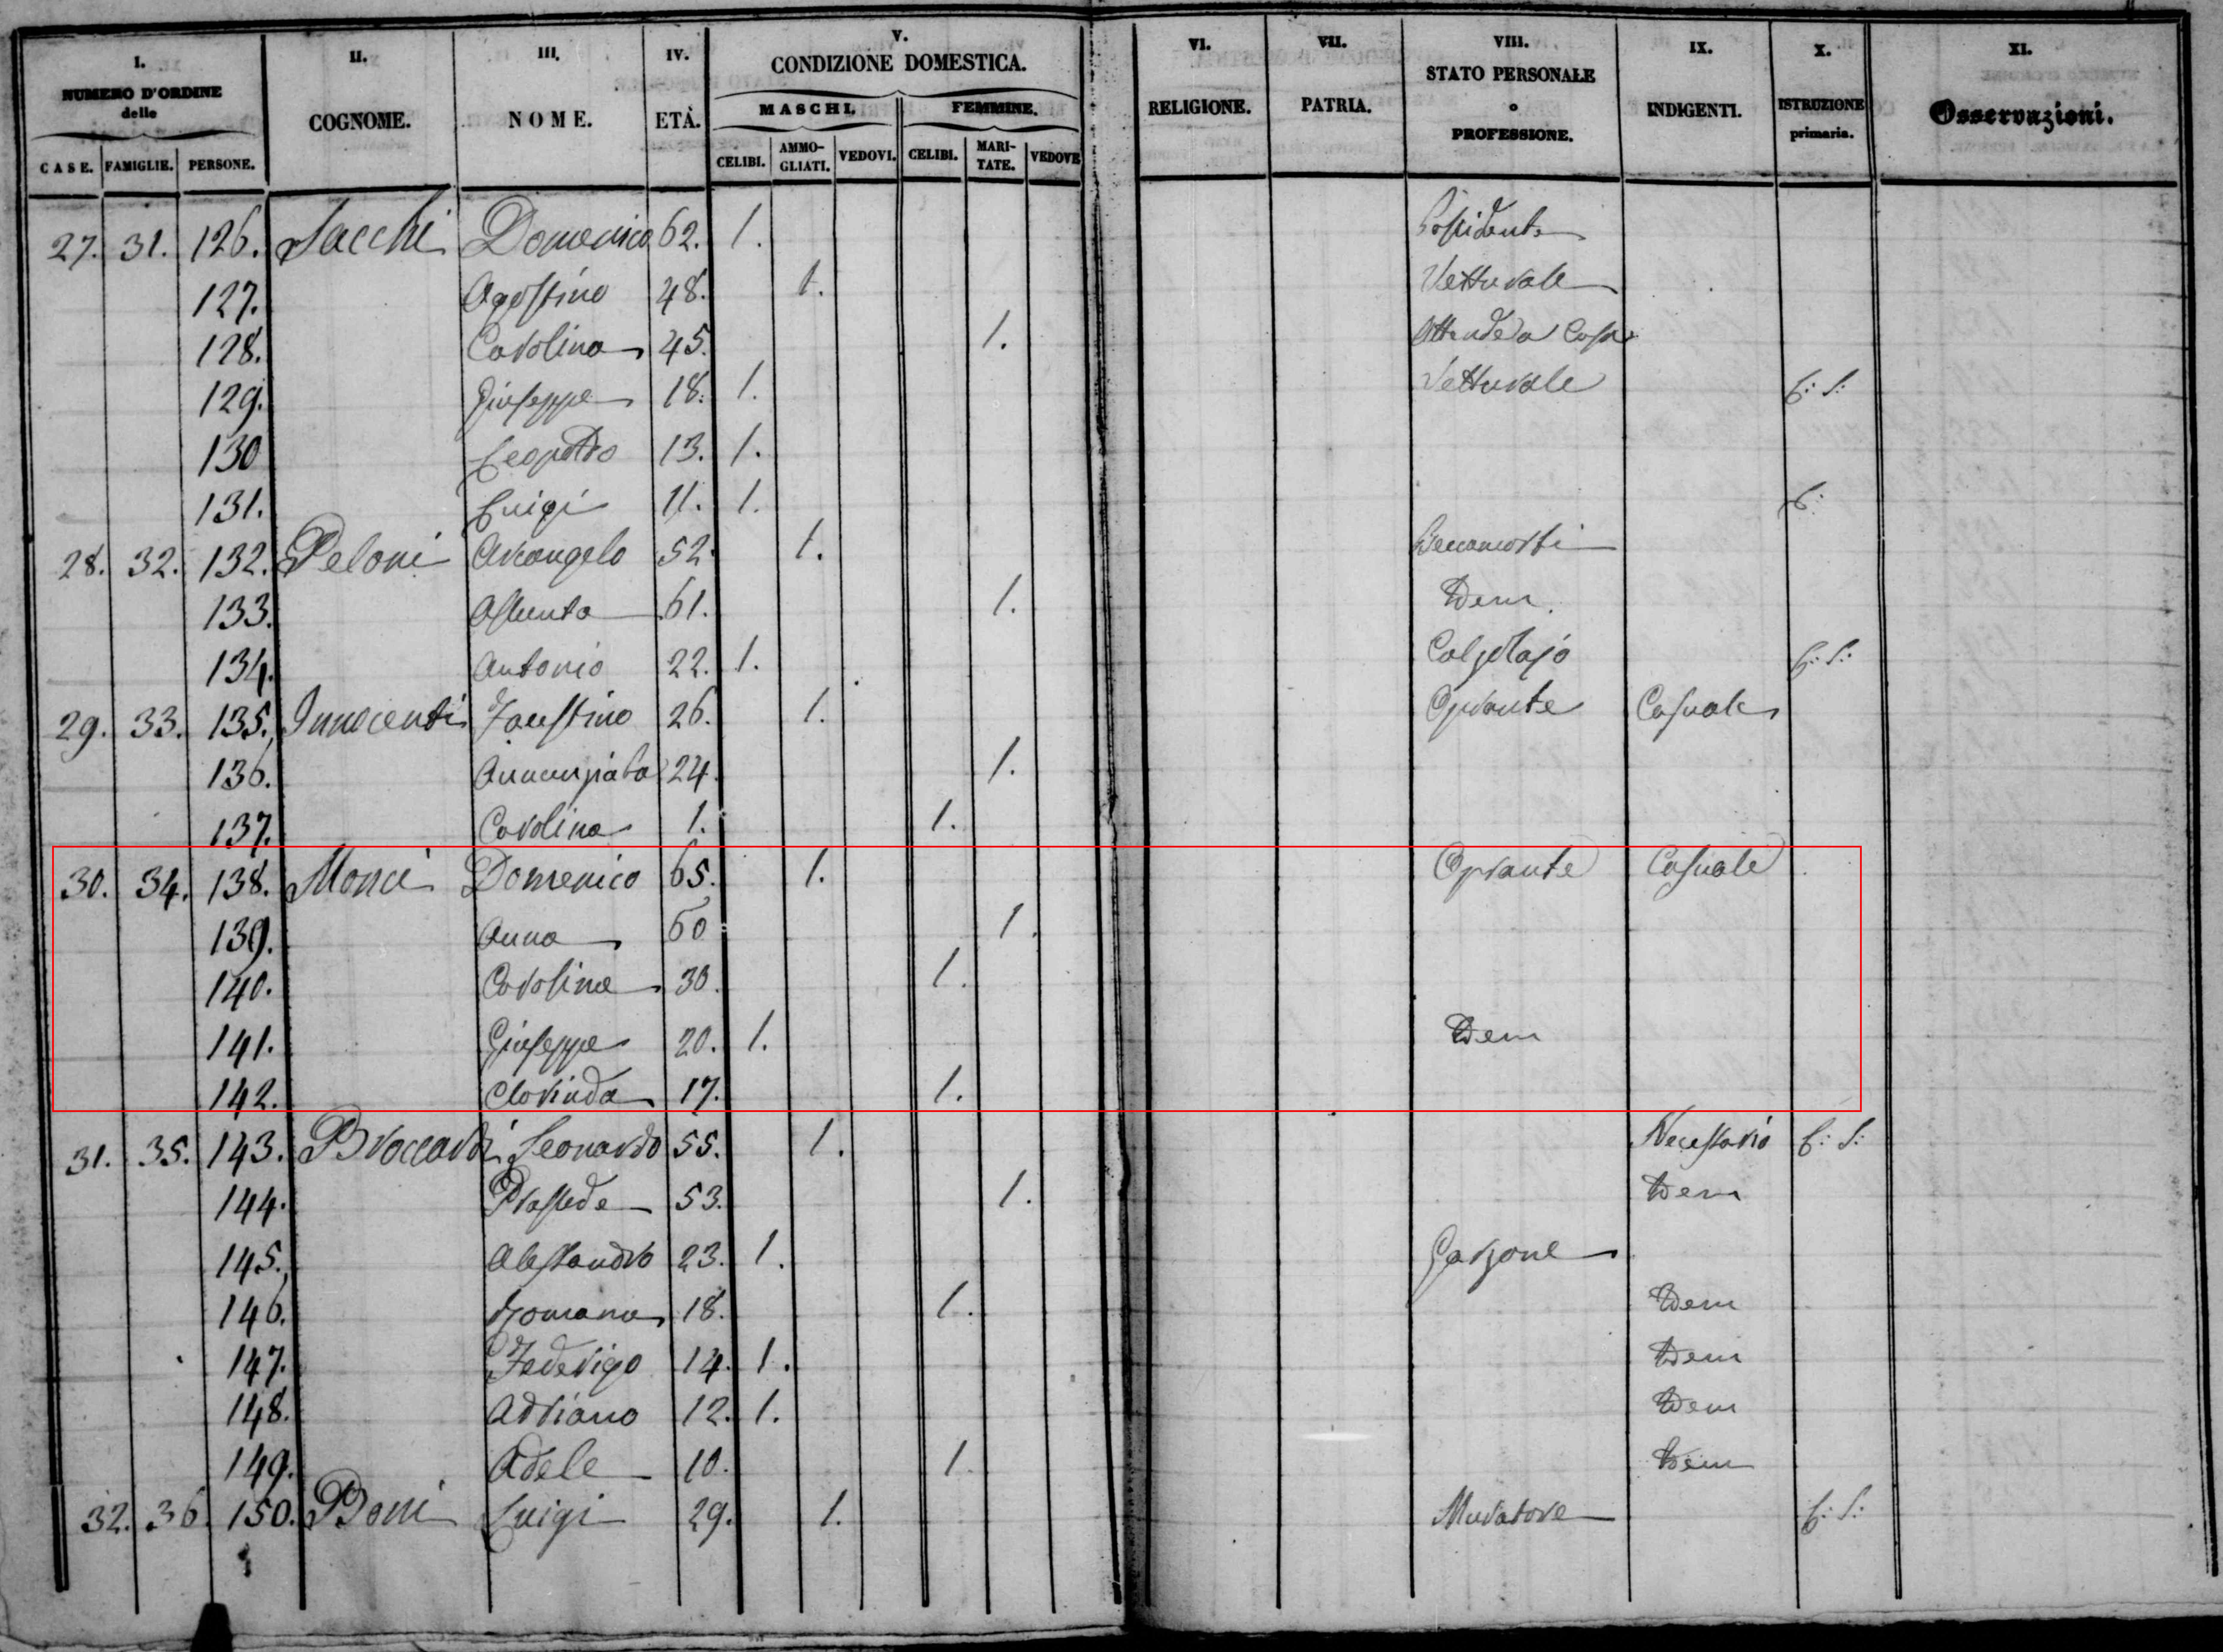 I. II. III. IV. V. VI. VII. VIII. IX. X. XI.
NUMERO D'ORDINE delle COGNOME. NOME. ETÀ. CONDIZIONE DOMESTICA. RELIGIONE. PATRIA. STATO PERSONALE o PROFESSIONE. INDIGENTI. ISTRUZIONE primaria. Osservazioni.
MASCHI. FEMMINE.
CASE. FAMIGLIE. PERSONE. CELIBI. AMMO-GLIATI. VEDOVI. CELIBI. MARI-TATE. VEDOVE
27. 31. 126. Sacchi Domenico 62. 1. Possidente
127. Agostino 48. 1. Vetturale
128. Carolina 45. 1. Attende a Casa
129. Giuseppe 18. 1. Vetturale L: S:
130 Leopoldo 13. 1.
131. Luigi 11. 1. L:
28. 32. 132. Peloni Arcangelo 52. 1. Beccamorti
133. Assunta 61. 1. Idem.
134. Antonio 22. 1. Calzolajo L: S:
29. 33. 135. Innocenti Faustino 26. 1. Oprante Casuale
136. Annunziata 24. 1.
137. Carolina 1. 1.
30. 34. 138. Monci Domenico 65. 1. Oprante Casuale
139. Anna 60 1.
140. Carolina 30. 1.
141. Giuseppe 20. 1. Idem
142. Clorinda 17. 1.
31. 35. 143. Broccardi Leonardo 55. 1. Necessario L: S:
144. Prassede 53. 1. Idem
145. Alessandro 23. 1. Garzone
146. Romana 18. 1. Idem
147. Federigo 14. 1. Idem
148. Adriano 12. 1. Idem
149. Adele 10. 1. Idem
32. 36. 150. Boni Luigi 29. 1. Muratore L: S: